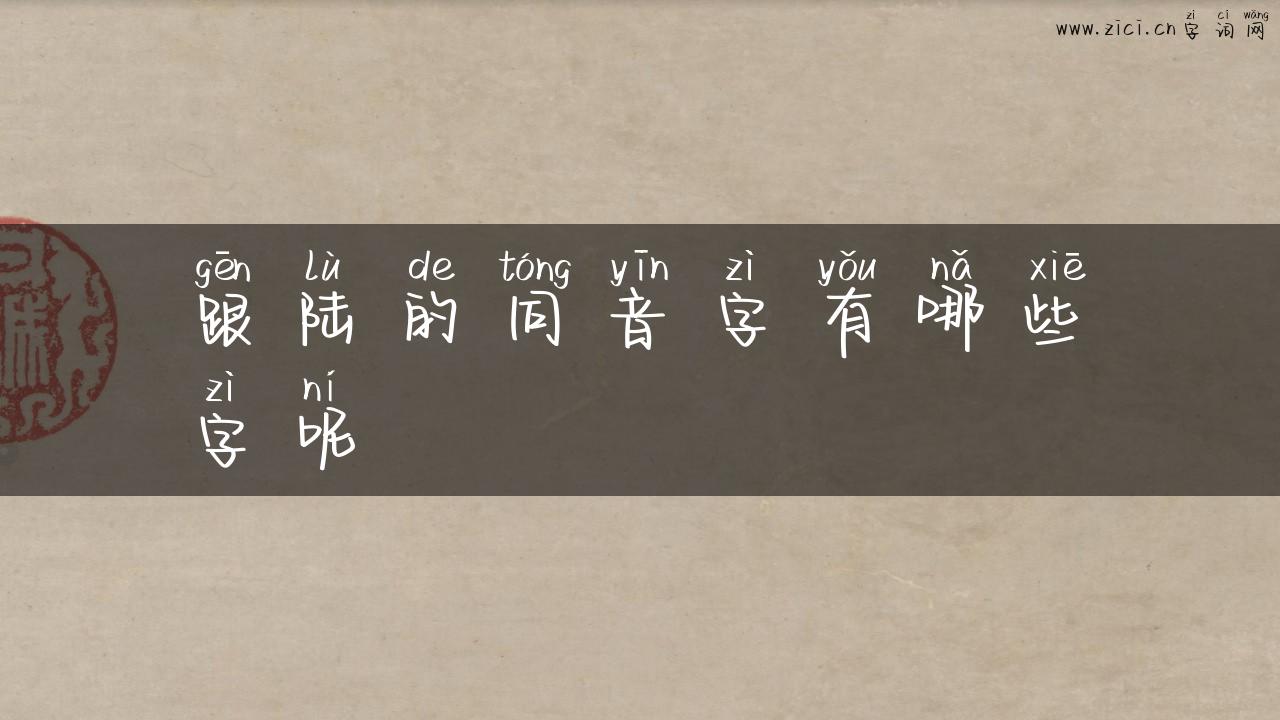 zì cí wǎng
www.zici.cn 字词网
gēn lù de tóng yīn zì yǒu nǎ xiē
跟陆的同音字有哪些
zì ní
字呢